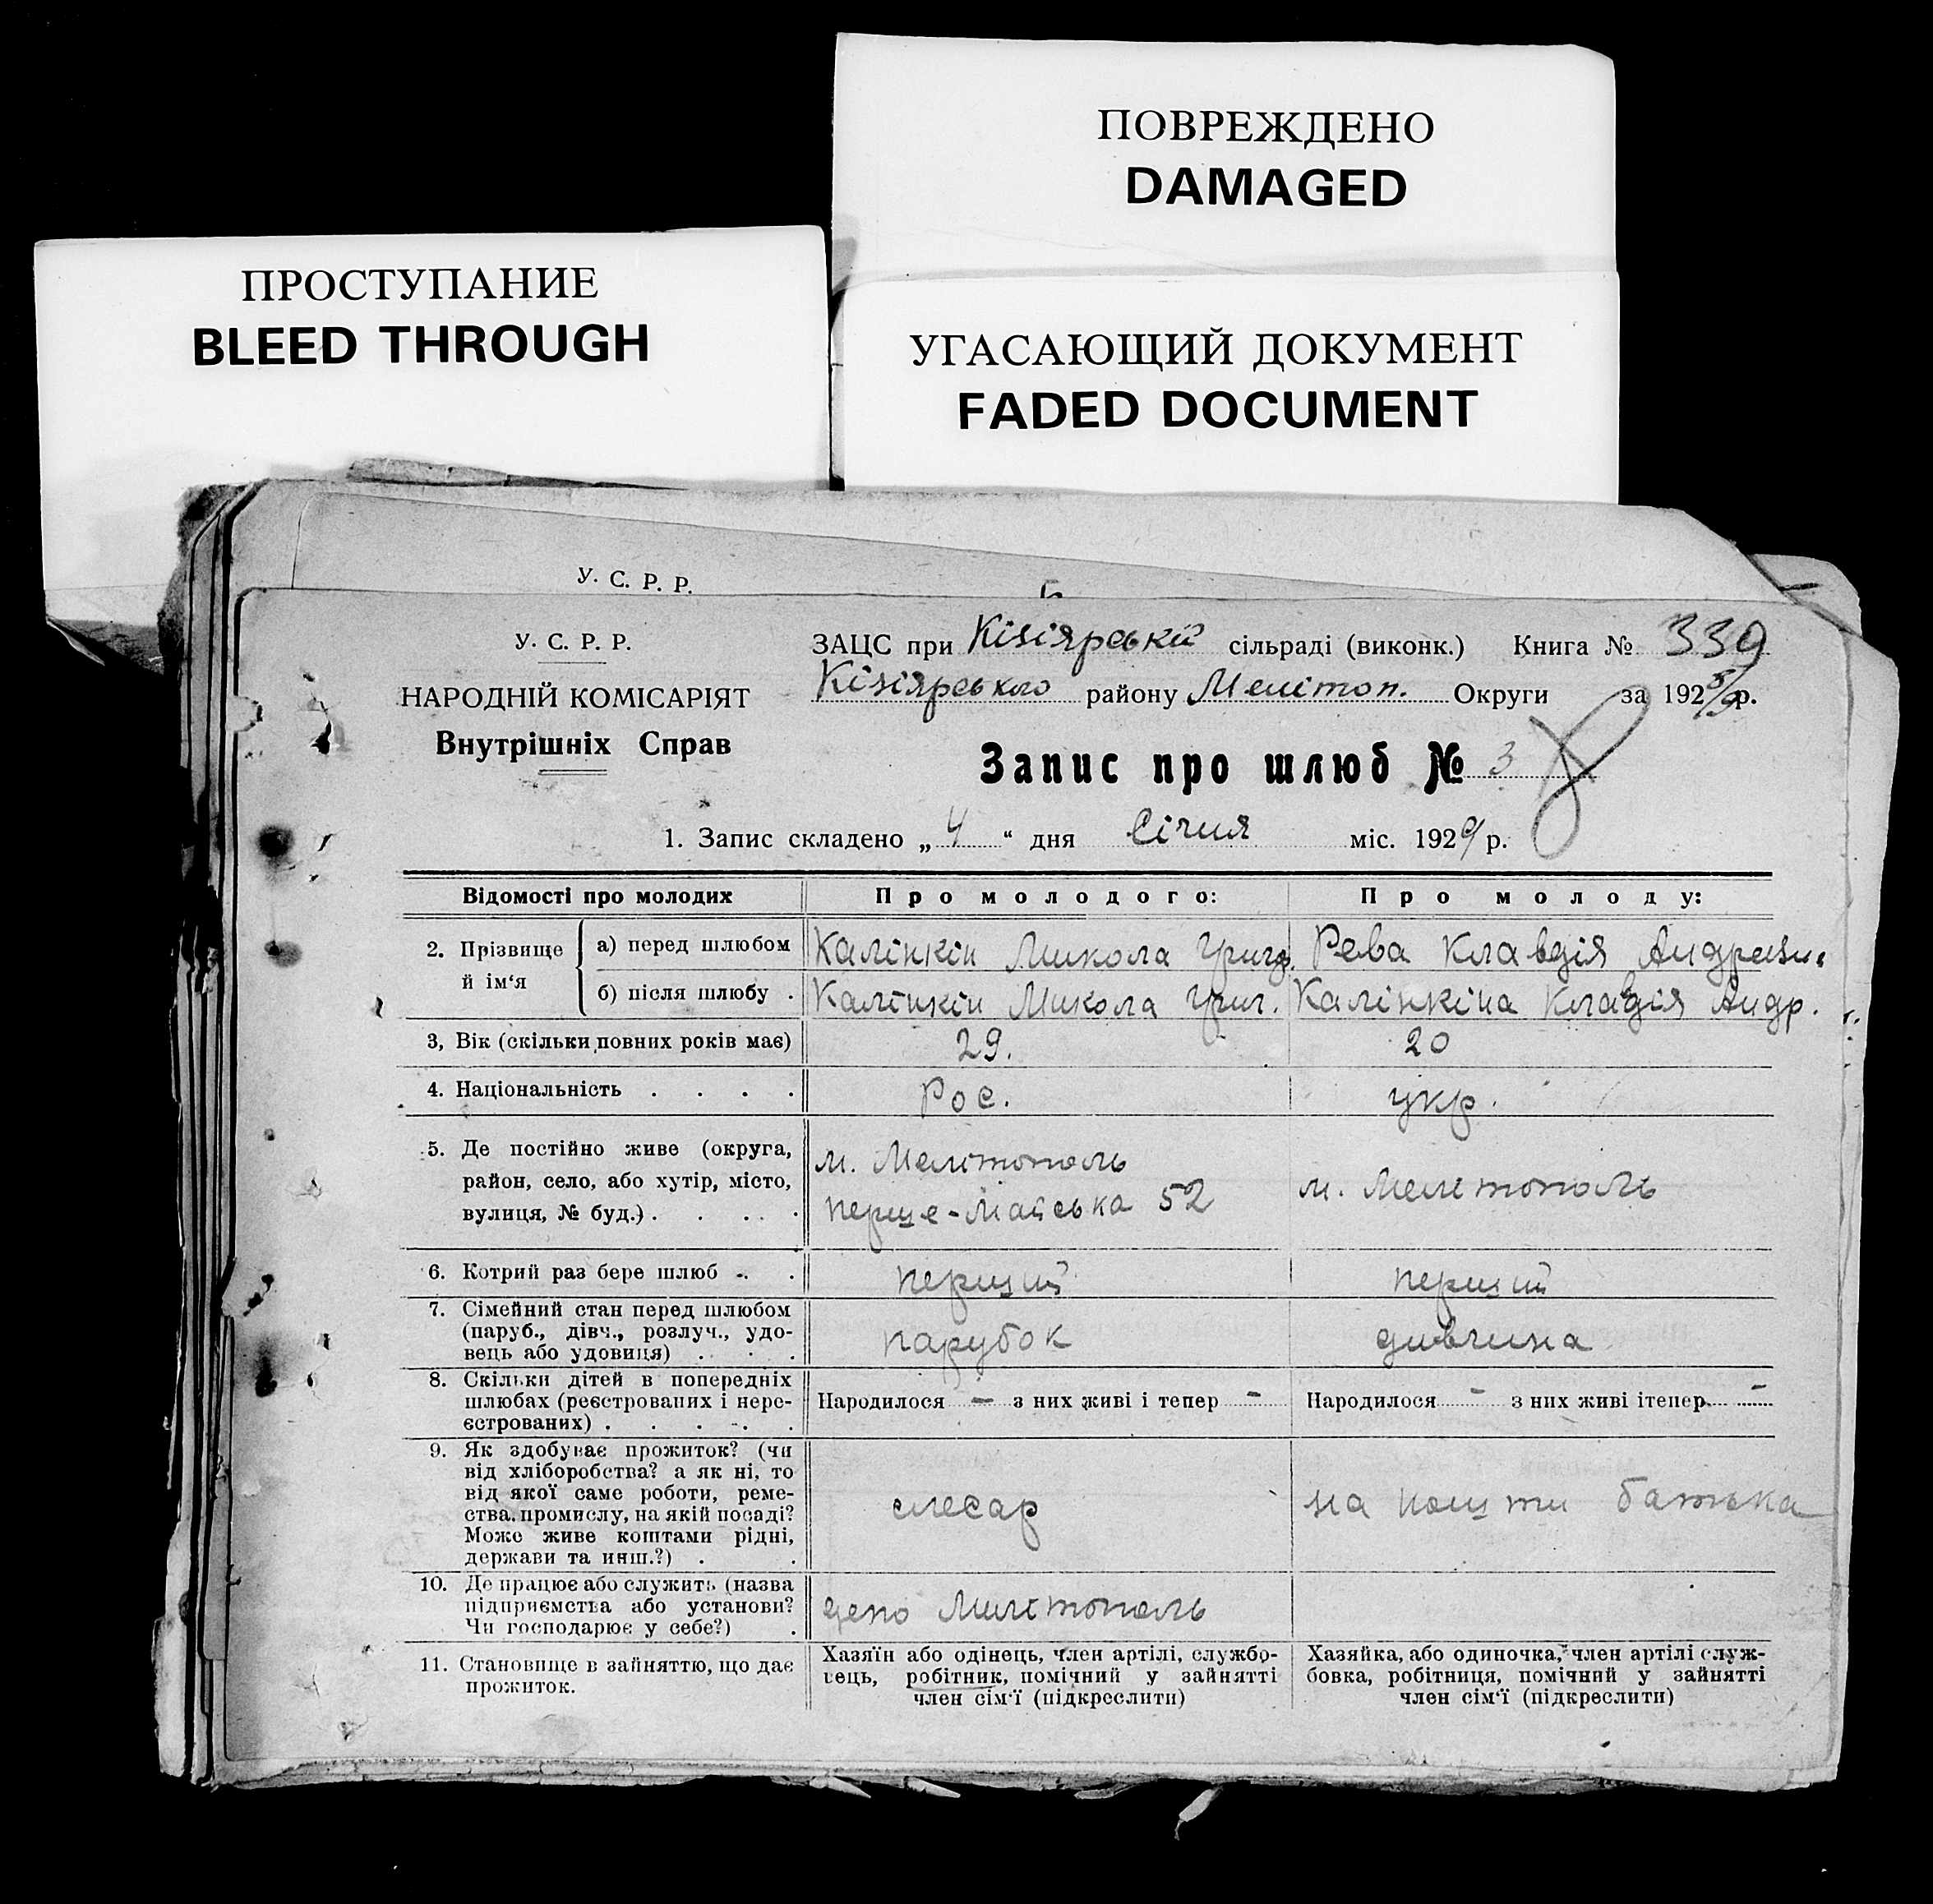 ПОВРЕЖДЕНО
DAMAGED
ПРОСТУПАНИЕ
BLEED THROUGH
УГАСАЮЩИЙ ДОКУМЕНТ
FADED DOCUMENT
У. С. Р. Р.
У. С. Р. Р.
НАРОДНІЙ КОМІСАРІЯТ
Внутрішніх Справ
ЗАЦС при Кізіярській сільраді (виконк.) Книга № 339
Кізіярського району Мелітоп. Округи за 1928/9 р.
Запис про шлюб № 3
1. Запис складено „ 4 “ дня Січня міс. 1929 р.
Відомості про молодих
Про молодого:
Про молоду:
2. Прізвище й ім‘я
а) перед шлюбом
Калінкін Микола Григ.
Рева Клавдія Андреевн.
б) після шлюбу .
Калінкін Микола Григ.
Калінкіна Клавдія Андр.
3, Вік (скільки повних років має)
29.
20
4. Національність . . . .
Рос.
укр.
5. Де постійно живе (округа,
район, село, або хутір, місто,
вулиця, № буд.) . . . . .
м. Мелітополь
перше-Майська 52
м. Мелітополь
6. Котрий раз бере шлюб . . .
перший
перший
7. Сімейний стан перед шлюбом
(паруб., дівч., розлуч., удо-
вець або удовиця) . . .
парубок
дивчина
8. Скільки дітей в попередніх
шлюбах (реєстрованих і нере-
єстрованих) . . . . .
Народилося — з них живі і тепер -
Народилося - з них живі ітепер -
9. Як здобуває прожиток? (чи
від хліборобства? а як ні, то
від якої саме роботи, реме-
ства, промислу, на якій посаді?
Може живе коштами рідні,
держави та инш.?) . .
слесар
на кошти батька
10. Де працює або служить (назва
підприємства або установи?
Чи господарює у себе?) .
депо Мелітополь
11. Становище в зайняттю, що дає
прожиток.
Хазяїн або одінець, член артілі, службо-
вець, робітник, помічний у зайнятті
член сім‘ї (підкреслити)
Хазяйка, або одиночка, член артілі служ-
бовка, робітниця, помічний у зайнятті
член сім‘ї (підкреслити)